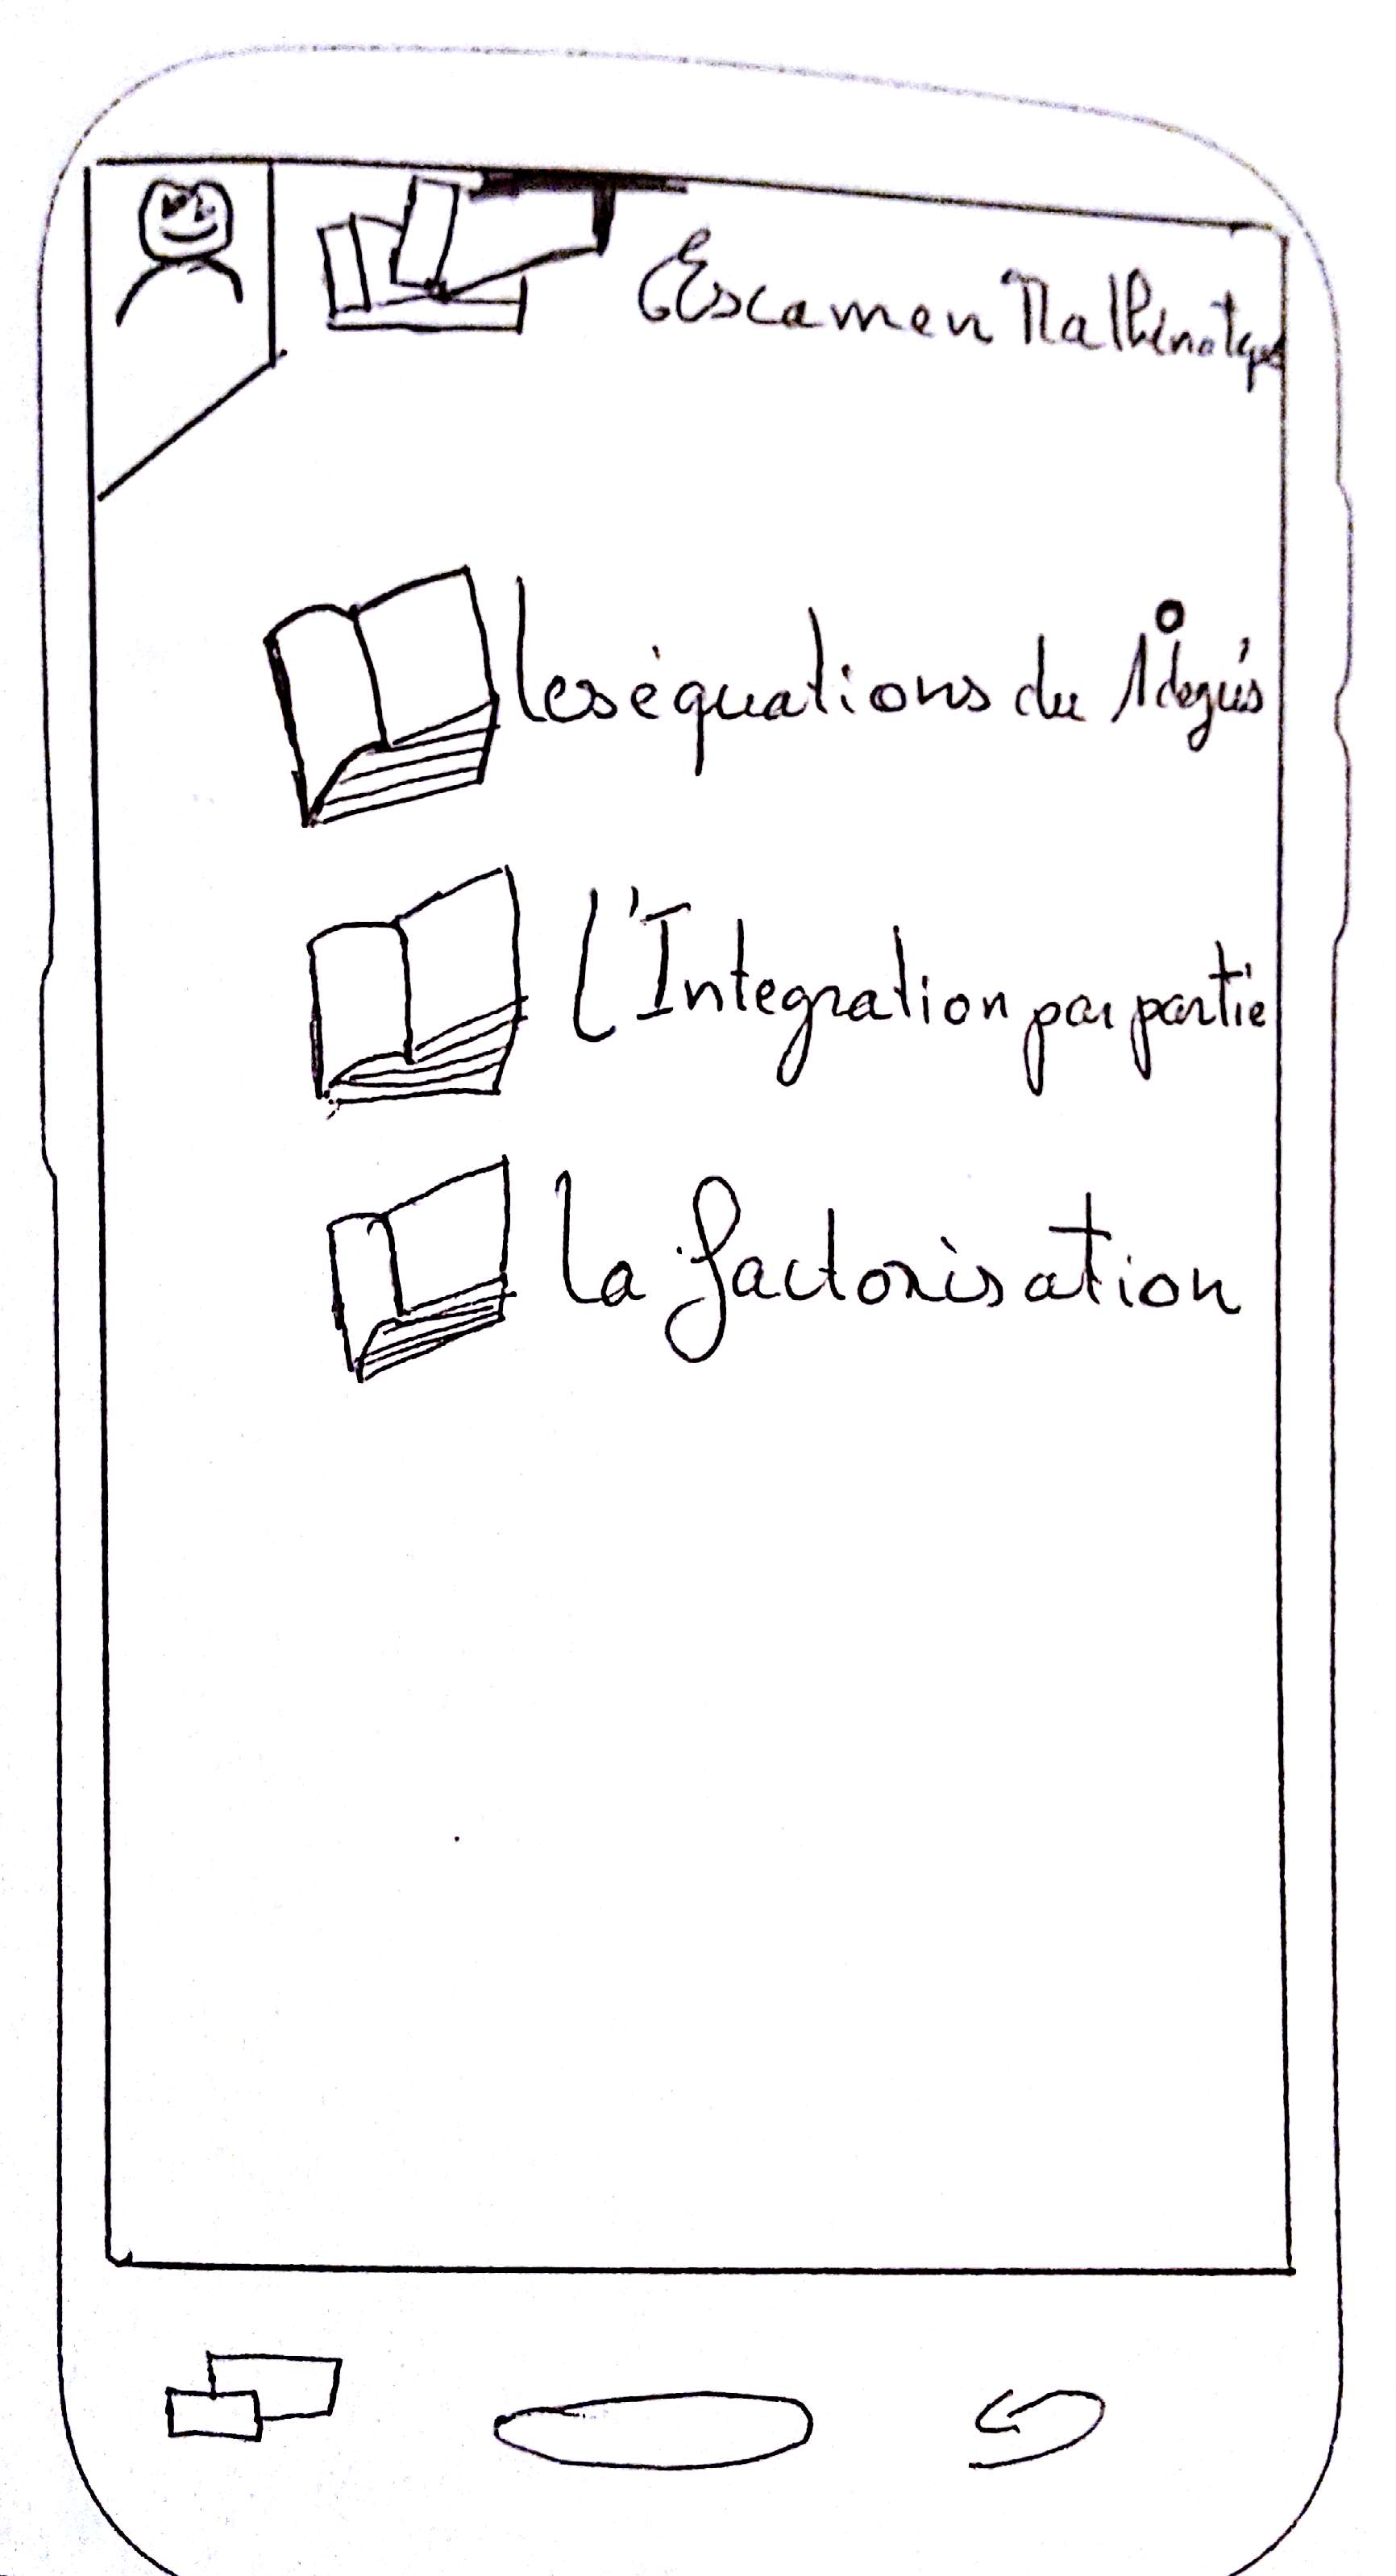 Examen Mathématiques
les équations du 1° degrés
l'Integration par partie
la factorisation